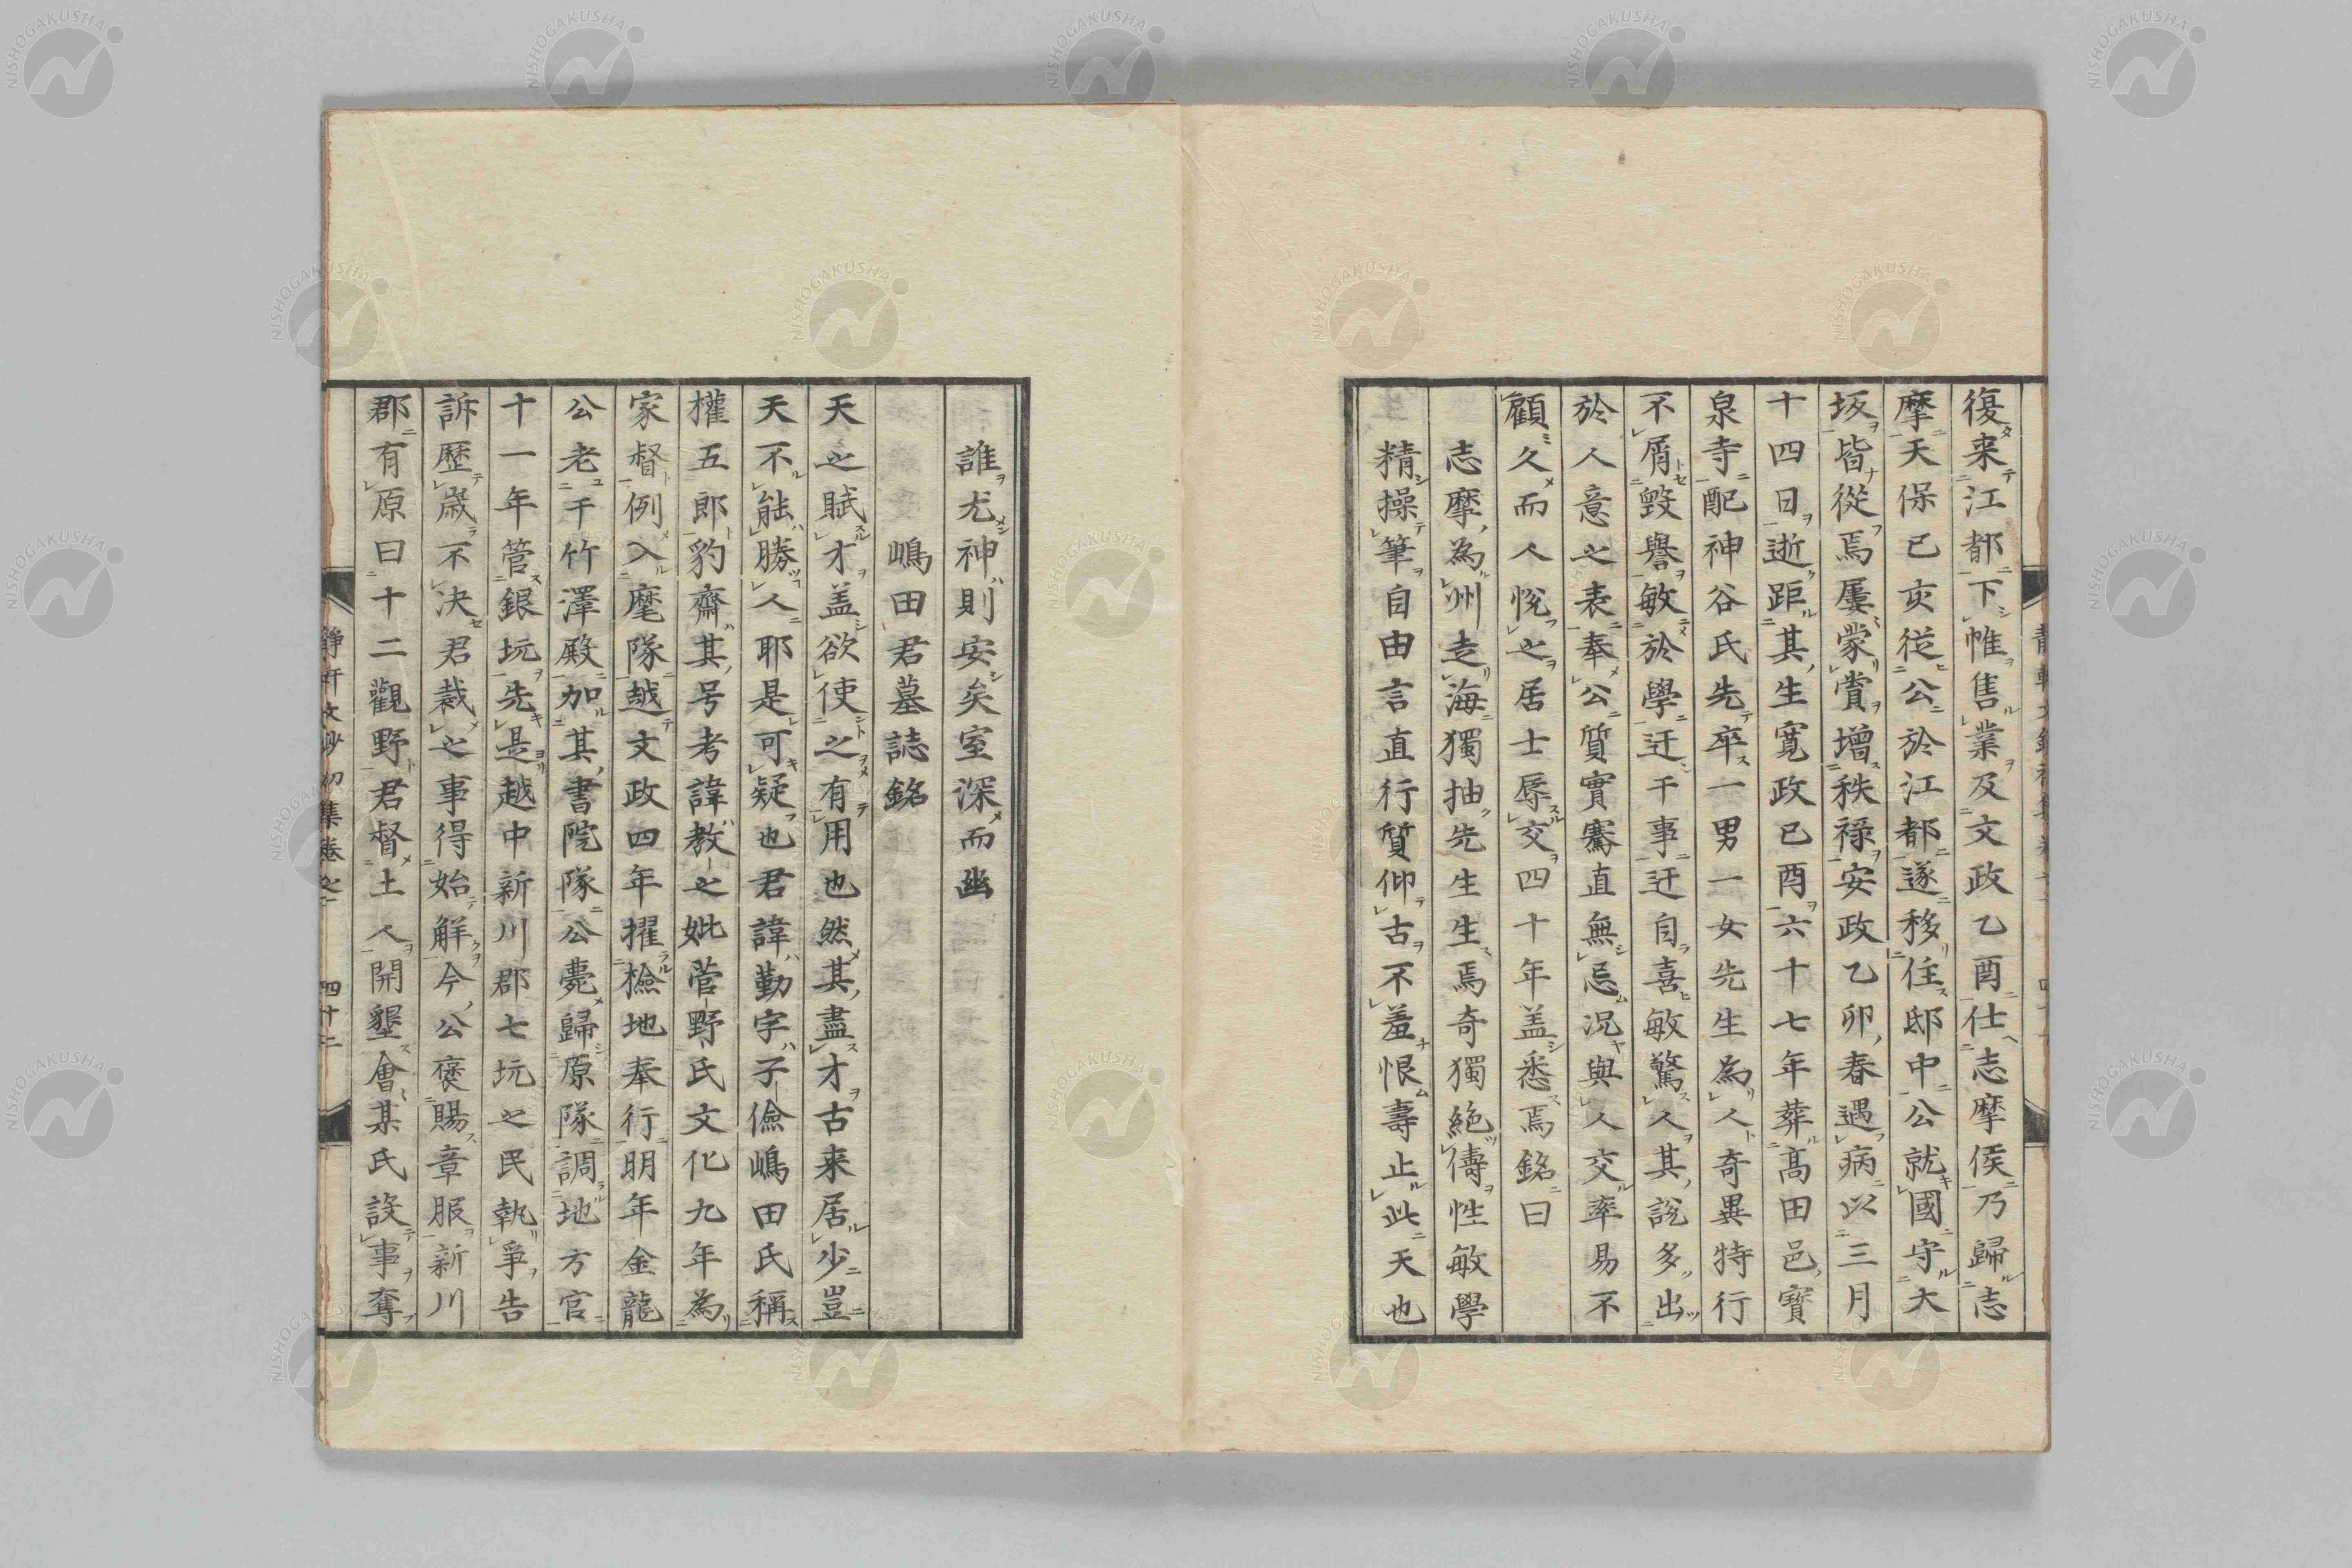 復来江都下帷售業及文政乙酉仕志摩侯乃歸志
摩天保己亥從公於江都遂移住邸中公就國守大
坂皆從焉屢蒙賞增秩祿安政乙卯春遇病以三月
十四日逝距其生寛政己酉六十七年葬高田邑寶
泉寺配神谷氏先卒一男一女先生為人奇異特行
不屑毀譽敏於學迂于事迂自喜敏驚人其說多出
於人意之表奉公質實騫直無忌況與人交率易不
顧久而人悅之居士辱交四十年盖悉焉銘曰
志摩為州走海獨抽先生生焉奇獨絶儔性敏學
精操筆自由言直行質仰古不羞恨壽止此天也
誰尤神則安矣室深而幽
嶋田君墓誌銘
天之賦才盖欲使之有用也然其盡才古来居少豈
天不能勝人耶是可疑也君諱勤字子儉嶋田氏稱
權五郎豹齋其号考諱教之妣菅野氏文化九年為
家督例入麾隊越文政四年擢檢地奉行明年金龍
公老于竹澤殿加其書院隊公薨歸原隊調地方官
十一年管銀坑先是越中新川郡七坑之民執爭告
訴歷歲不決君裁之事得始解今公褒賜章服新川
郡有原曰十二觀野君督土人開墾會某氏設事奪
靜軒文鈔初集卷之
四十二